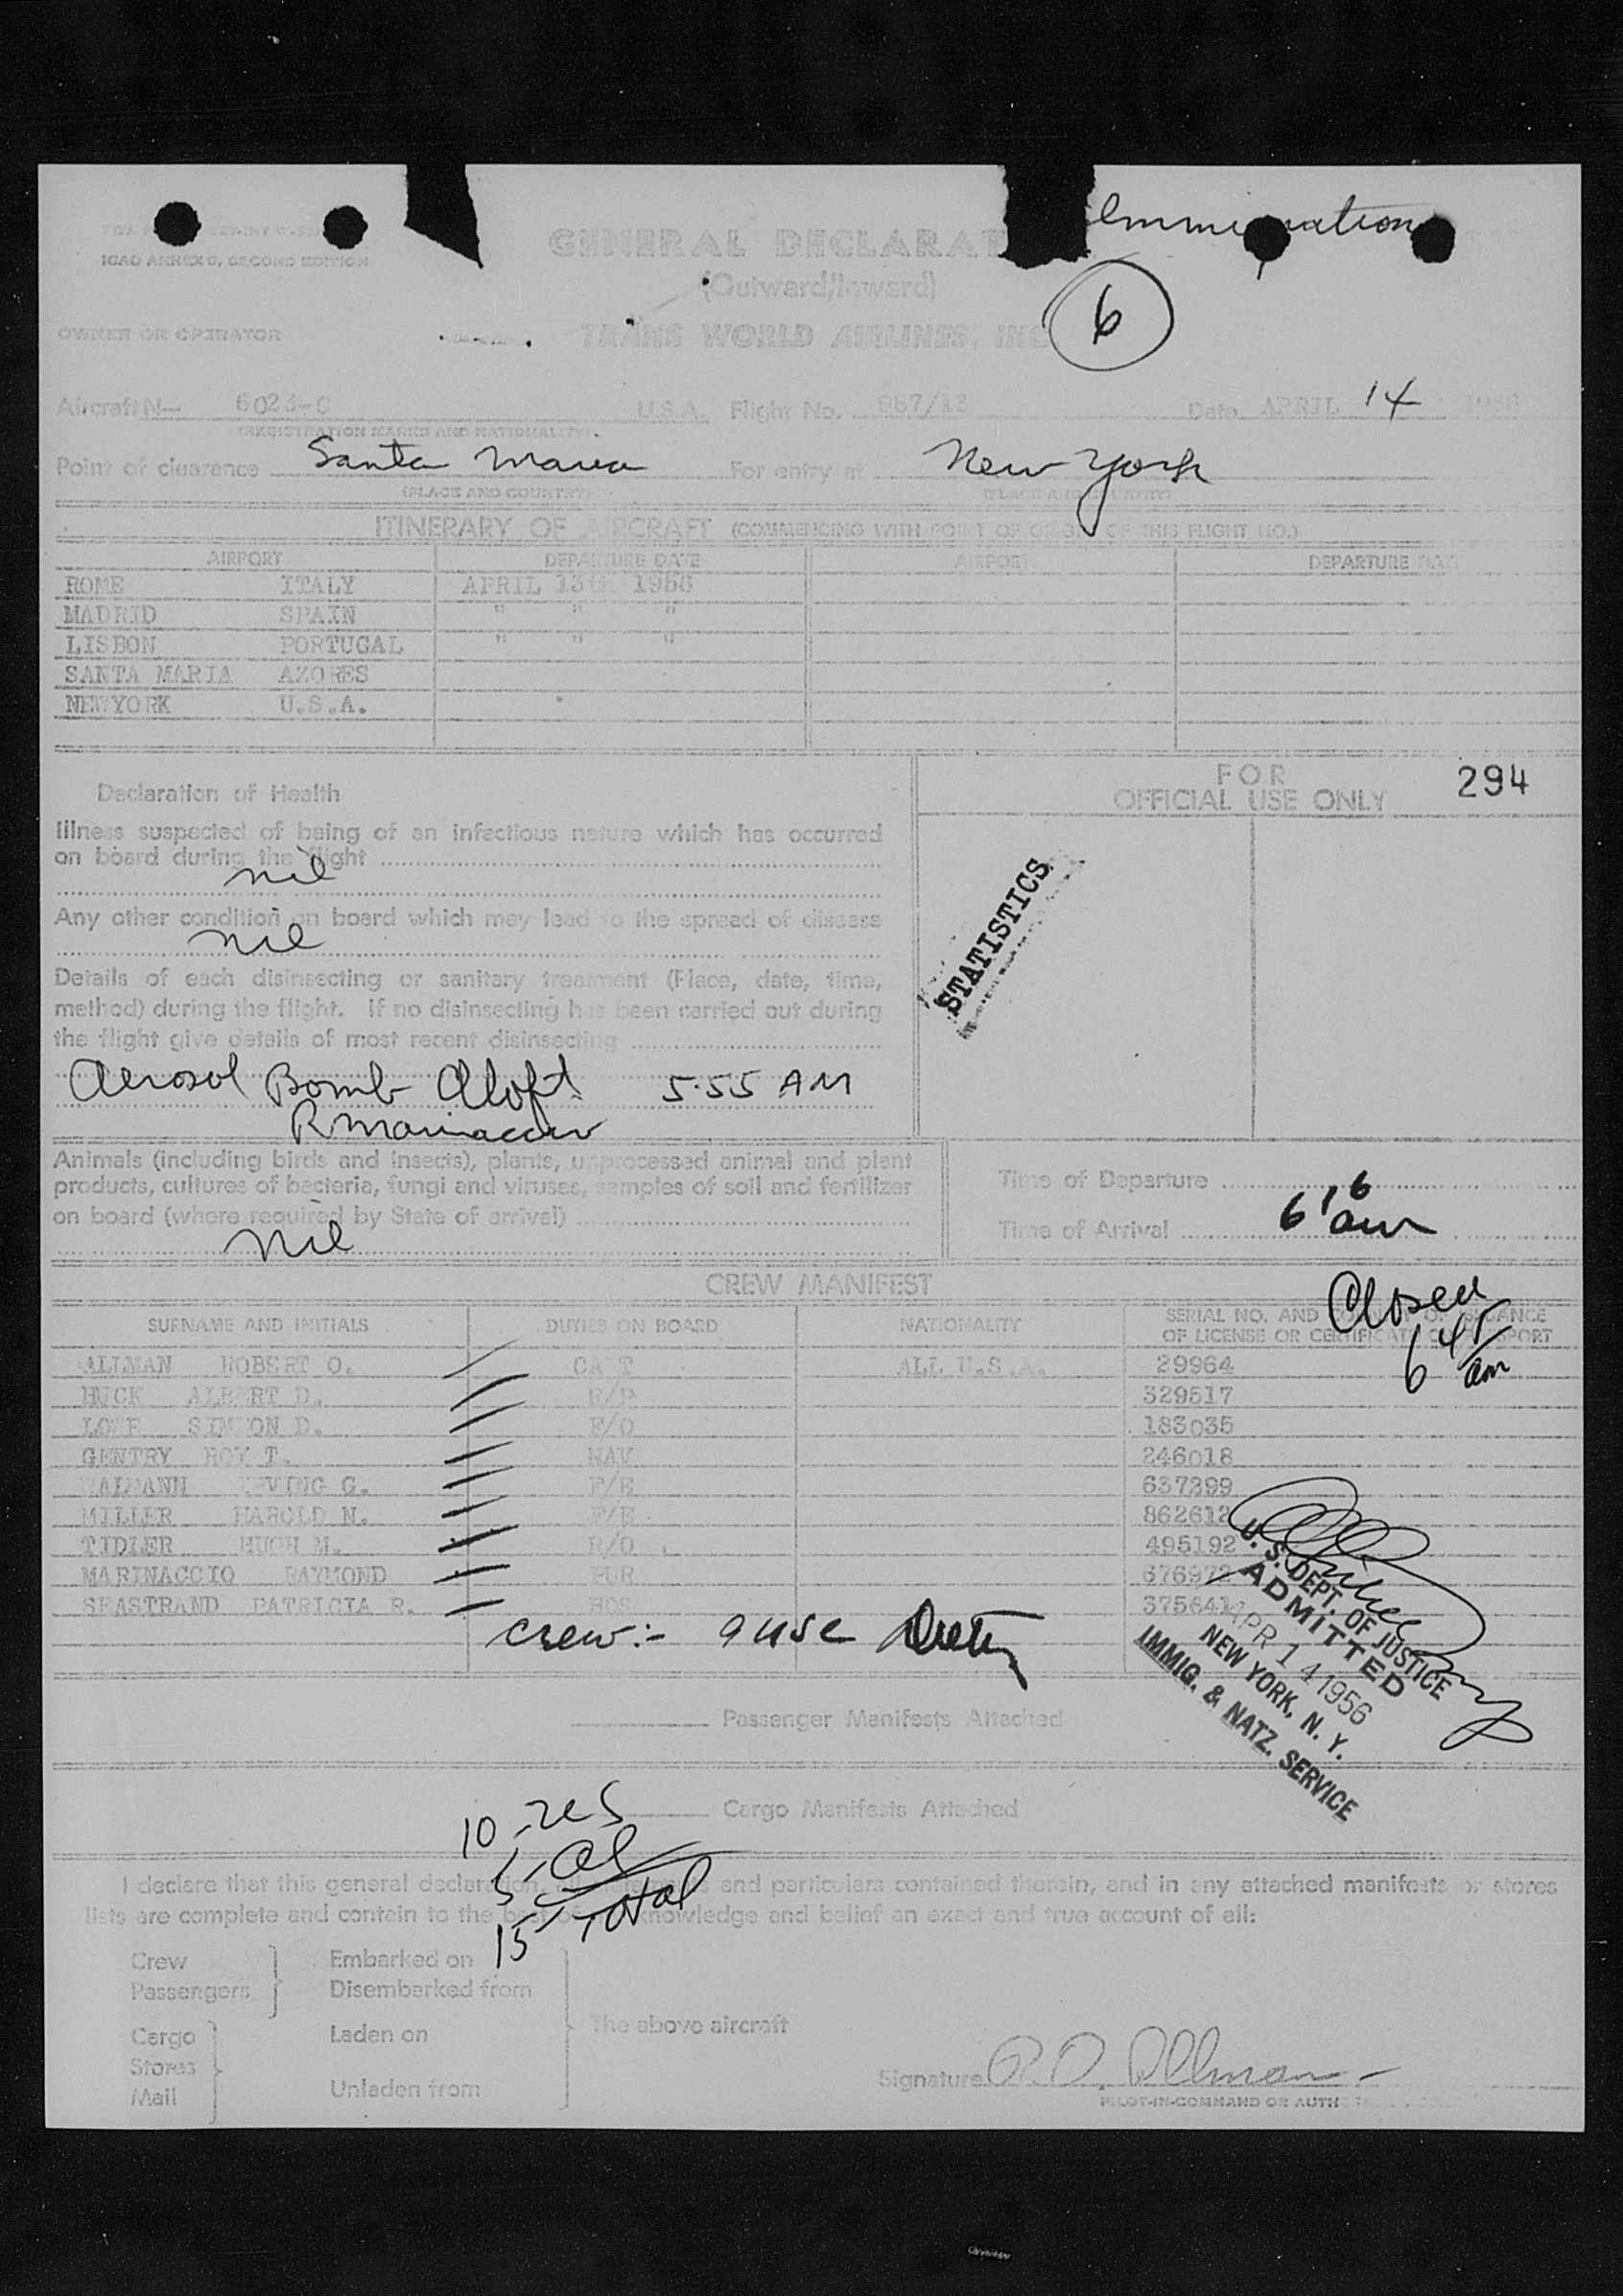 Immigration
ICAO ANNEX 9, SECOND EDITION
GENERAL DECLARAT
(Outward/Inward)
6
OWNER OR OPERATOR TRANS WORLD AIRLINES, INC
Aircraft N— 6023-C U.S.A. Flight No. 967/13 Date APRIL 14 1956
(REGISTRATION MARKS AND NATIONALITY)
Point of clearance Santa Maria For entry at New York
(PLACE AND COUNTRY) (PLACE AND COUNTRY)
ITINERARY OF AIRCRAFT (COMMENCING WITH POINT OF ORIGIN OF THIS FLIGHT NO.)
AIRPORT DEPARTURE DATE AIRPORT DEPARTURE DATE
ROME ITALY APRIL 13th 1956
MADRID SPAIN " " "
LISBON PORTUGAL " " "
SANTA MARIA AZORES
NEWYORK U.S.A.
FOR
OFFICIAL USE ONLY 294
Declaration of Health
Illness suspected of being of an infectious nature which has occurred
on board during the flight
nil
Any other condition on board which may lead to the spread of disease
nil
Details of each disinsecting or sanitary treatment (Place, date, time,
method) during the flight. If no disinsecting has been carried out during
the flight give details of most recent disinsecting
Aerosol Bomb Aloft 5:55 AM
R Marinaccio
STATISTICS
Animals (including birds and insects), plants, unprocessed animal and plant
products, cultures of bacteria, fungi and viruses, samples of soil and fertilizer
on board (where required by State of arrival)
Nil
Time of Departure
Time of Arrival 6 16 am
CREW MANIFEST
Closed
6 45 am
SURNAME AND INITIALS DUTIES ON BOARD NATIONALITY SERIAL NO. AND OF ISSUANCE
OF LICENSE OR CERTIFICATE OR PASSPORT
ALLMAN ROBERT O. CAPT ALL U.S.A. 29964
HUCK ALBERT D. R/P 329517
SIMEON D. F/O 183035
GENTRY ROY T. NAV 246018
IRVING G. F/E 637399
MILLER HAROLD N. F/E 862612
TIDLER HUGH M. R/O 495192
MARINACCIO RAYMOND PUR 676972
SEASTRAND PATRICIA R. HOS 375641
crew:- 9 USC
U.S. DEPT. OF JUSTICE
ADMITTED
APR 14 1956
NEW YORK, N.Y.
IMMIG. & NATZ. SERVICE
Passenger Manifests Attached
Cargo Manifests Attached
10-
5-al
15-Total
I declare that this general declaration, and particulars contained therein, and in any attached manifests or stores
lists are complete and contain to the best of knowledge and belief an exact and true account of all:
Crew Embarked on
Passengers Disembarked from
The above aircraft
Cargo Laden on
Stores
Mail Unladen from
Signature R.O. Allman
PILOT-IN-COMMAND OR AUTH